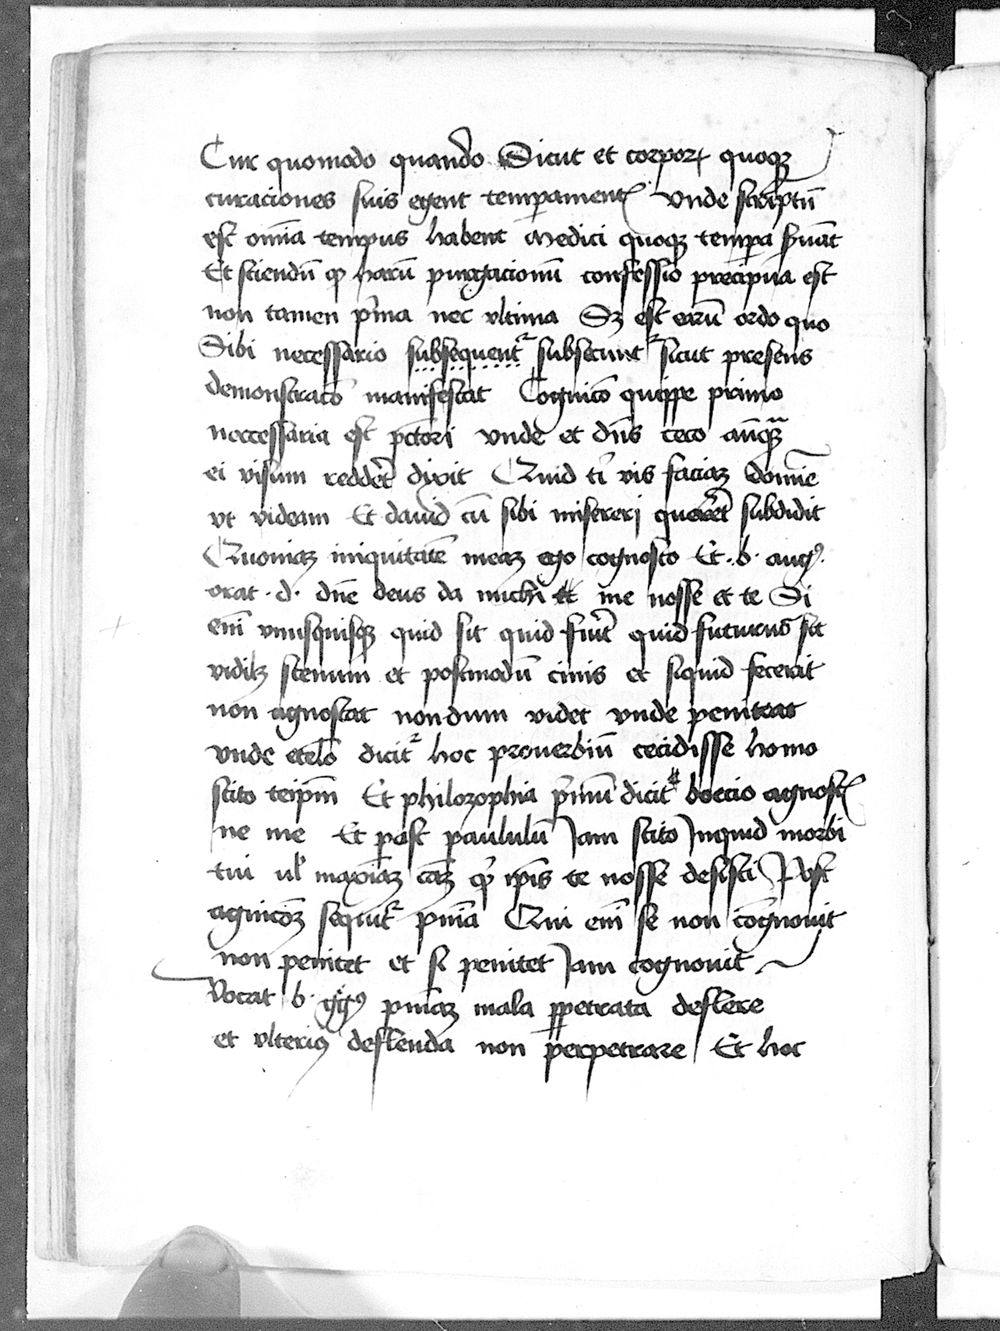 Cur quomodo quando Sicut et corporꝝ quoqꝫ
curaciones suis egent temꝑamentꝭ Vnde scͥptū
est om̄ia tempus habent Medici quoqꝫ temꝑa ẜuāt
Et sciendū ꝙ harū purgacionū confessio precipua est
non tamen pͥma nec vltima Sꝫ est earū ordo quo
Sibi necessario subsequentᷣ subsecuntᷣ sicut presens
demonstracō manifestat Cognicō quippe primo
neccessaria est pc̄tori vnde et dn̄s ceco an̄qꝫ
ei visum reddēt dixit Quid tͥ vis faciaꝫ domīe
vt videam Et dauid cū sibi misereri querēt subdidit
Quoniaꝫ iniquitatē meaꝫ ego cognosco Et .b. augꝰ.
orat .d. dn̄e deus da michi et me nosse et te Si
em̄ vnusquisqꝫ quid sit quid fuīt quid futurus sit
vidilꝫ scenum et postmodū cinis et siquid fecerit
non agnoscat nondum videt vnde peniteat
vnde et celo dicitᷣ hoc prouerbiū cecidisse homo
scito teip̄m Et philozophia pͥmū dicit boecio agnoscꝭ
ne me Et post paululū Jam scito Jnquid morbi
tui ul̓ maxiāꝫ cāꝫ ꝙ ip̄is te nosse desisti Post
agnicōꝫ sequitᷣ pnīa Qui em̄ se non cōgnouit
non penitet et si penitet Jam cognouit
Vocat .b. gͥgꝰ pnīaꝫ mala ꝑpetrata deflere
et vlteriꝰ deflenda non perpetrare Et hoc